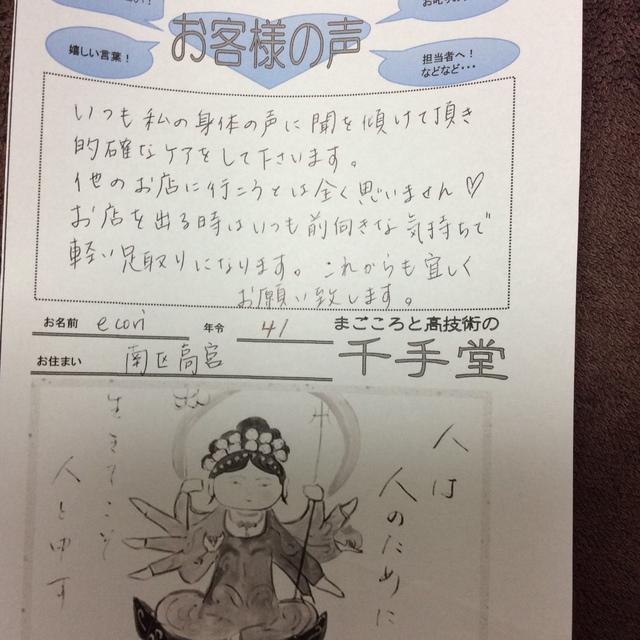 嬉しい言葉！
お客様の声
担当者へ！
などなど・・・
いつも私の身体の声に聞を傾けて頂き
的確なケアをして下さいます。
他のお店に行こうとは全く思いません♡
お店を出る時はいつも前向きな気持ちで
軽い足取りになります。これからも宜しく
お願い致します。
お名前 ecori 年令 41
お住まい 南区高宮
まごころと高技術の
千手堂
人は
人のために
生きてこそ
人と申す